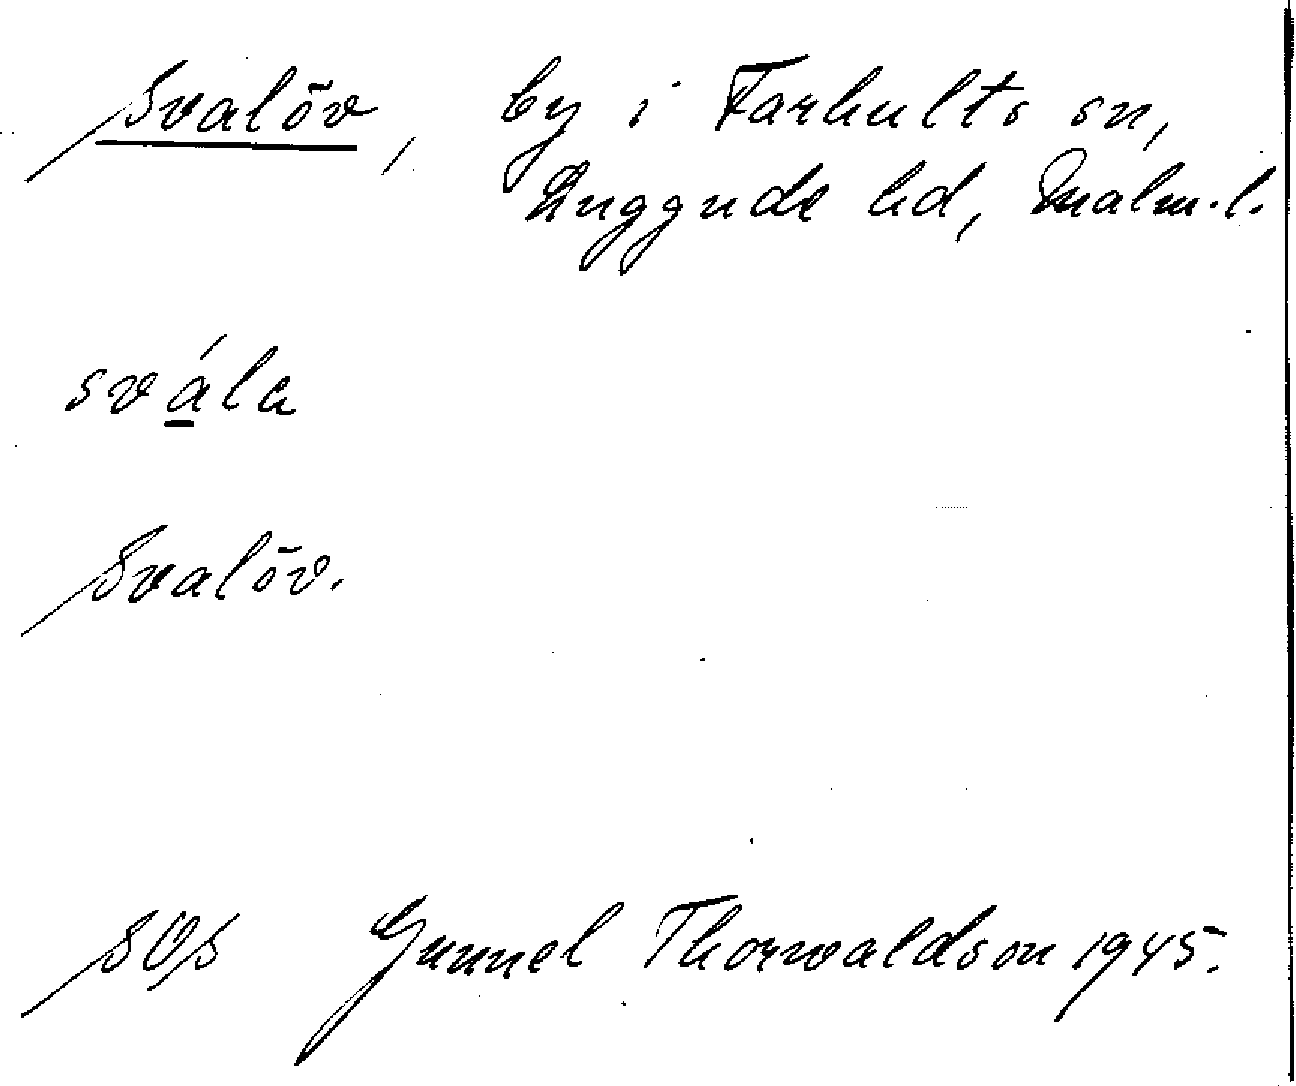 Svalöv, by i Farhults sn,
Luggude hd, Malm.l.
svála
Svalöv.
SOS Gunnel Thorwaldson 1945.